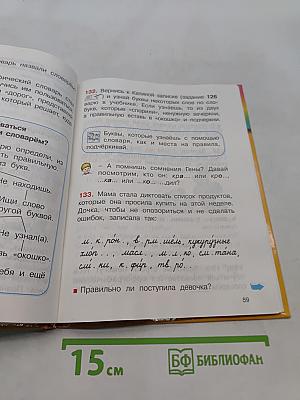 варь назвали словом
рический словарь слова
дорог», представ
который решает, ка
ваться
словарём?
определи, из
правильную
Не находишь.
Ищи слово
другой буквой.
Не узнал(а).
«окошко»
ебя и ещё
132. Вернись к Катиной записке (задание 126
) и узнай буквы некоторых слов по сло-
варю в учебнике. Если узнаешь то из двух
букв, которые «спорили», ненужную зачеркни,
а правильную вставь в «окошко» и подчеркни.
Буквы, которые узнаёшь с помощью
словаря, как и места на правила,
подчёркивай.
– А помнишь сомнения Гены? Давай
посмотрим, кто он: кра... или кро...
...ка... или ...ко...дил?
133. Мама стала диктовать список продуктов,
которые она просила купить на этой неделе.
Дочка, чтобы не опозориться и не сделать
ошибок, записала так:
м.к.рон.., в.рм.шель, кукурузные
хлоп.., масл., м.л.ко, см.тана,
сли.ки, к.фир, тв.ро..
Правильно ли поступила девочка?
59
15 см
БФ БИБЛИОФАН